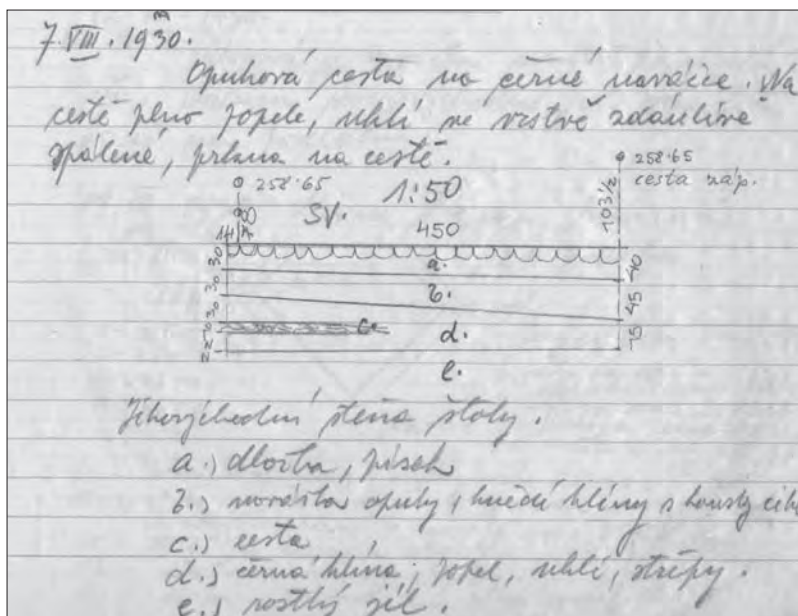 7. VIII. 1930.
Opuková cesta na černé navážce. Na
cestě plno popele, uhlí ve vrstvě zdánlivě
spálené, prkna na cestě.
258·65
cesta záp.
258·65
SV.
1:50
103 1/2
14
78
450
30
a.
40
30
b.
45
30
c.
d.
75
22
e.
Jihovýchodní stěna štoly.
a.) dlažba, písek
b.) navážka opuky, hnědé hlíny s kousky
c.) cesta
d.) černá hlína, popel, uhlí, střepy.
e.) rostlý jíl.